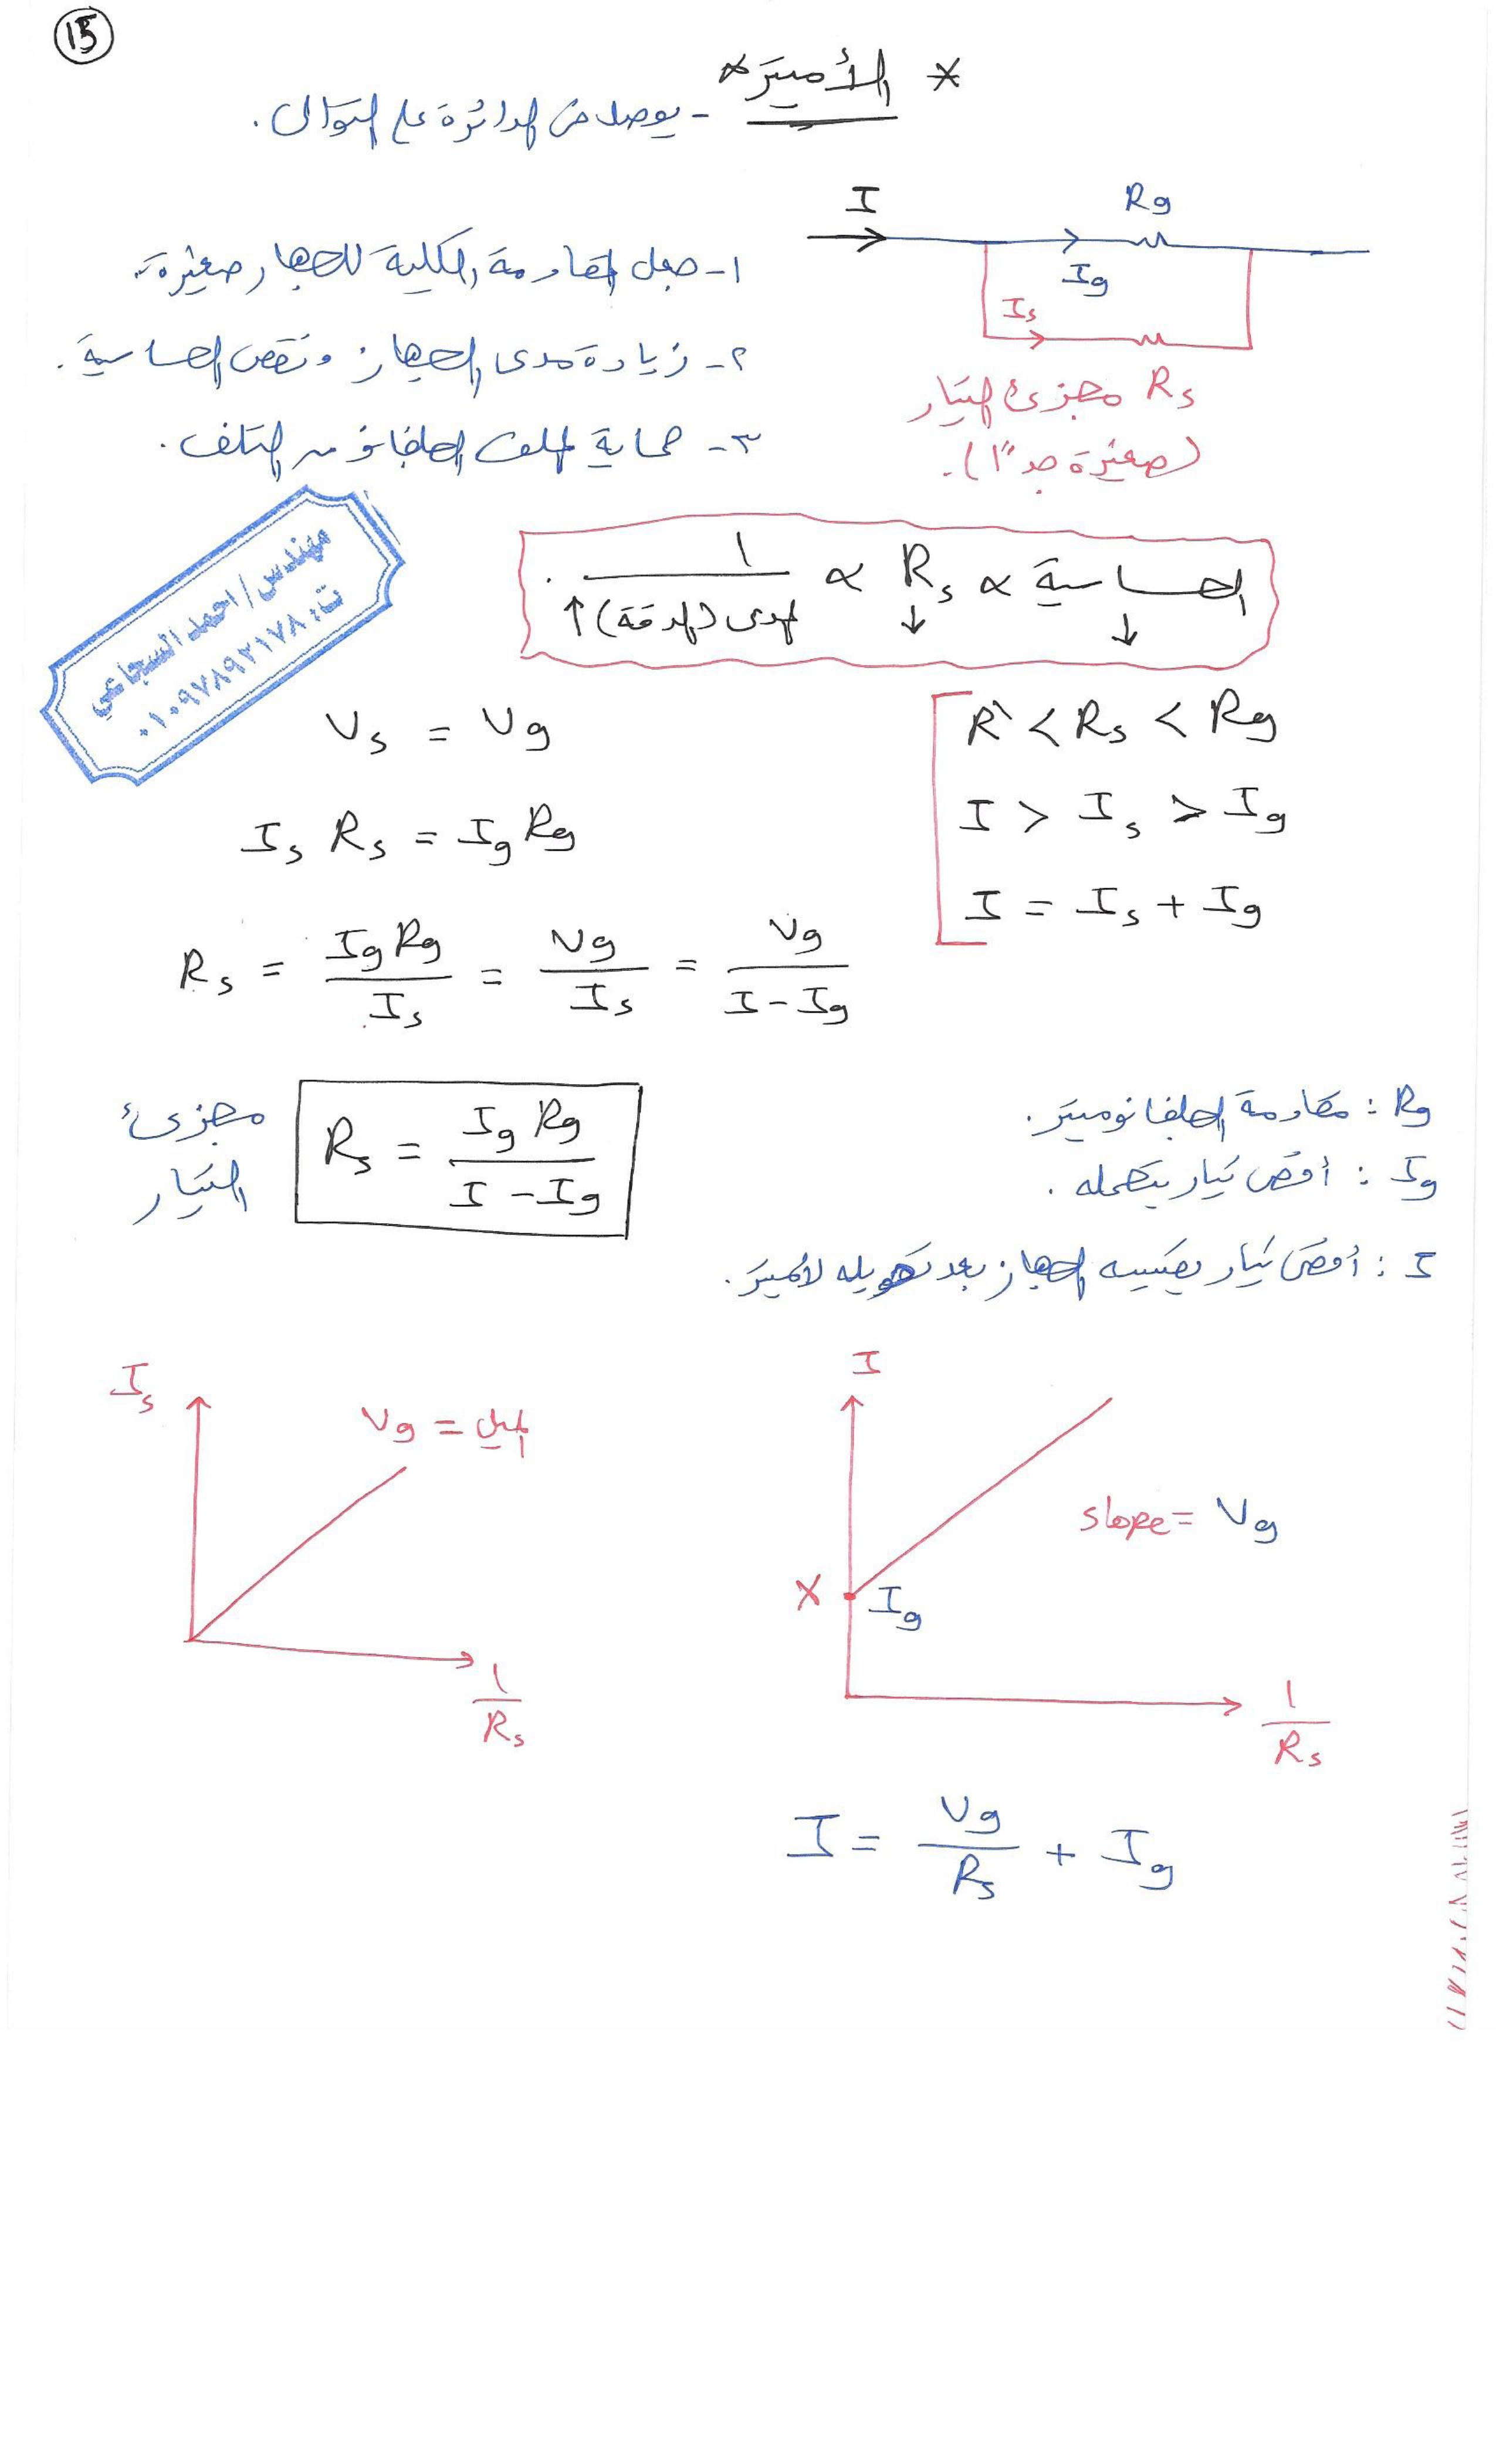 15
* الأميتر *
- يوصل في الدائرة على التوالي.
I
Rg
Ig
Is
Rs مجزئ التيار
(صغيرة جداً).
١- جعل المقاومة الكلية للجهاز صغيرة.
٢- زيادة مدى الجهاز ونقص الحساسية.
٣- حماية الملف الجلفانو من التلف.
الحساسية ∝ Rs ∝ 1 / المدى (الدقة) ↑ .
↓ ↓
مهندس/ احمد السجاعي
ت: ٠١٠٩٧٨٩٢١٧٨
R` < Rs < Rg
I > Is > Ig
I = Is + Ig
Vs = Vg
Is Rs = Ig Rg
Rs = Ig Rg / Is = Vg / Is = Vg / I - Ig
Rs = Ig Rg / I - Ig
مجزئ
التيار
Rg : مقاومة الجلفانوميتر.
Ig : أقصى تيار يتحمله .
I : أقصى تيار يقيسه الجهاز بعد تحويله لأميتر.
I
slope = Vg
X
Ig
1 / Rs
Is
Vg = الميل
1 / Rs
I = Vg / Rs + Ig